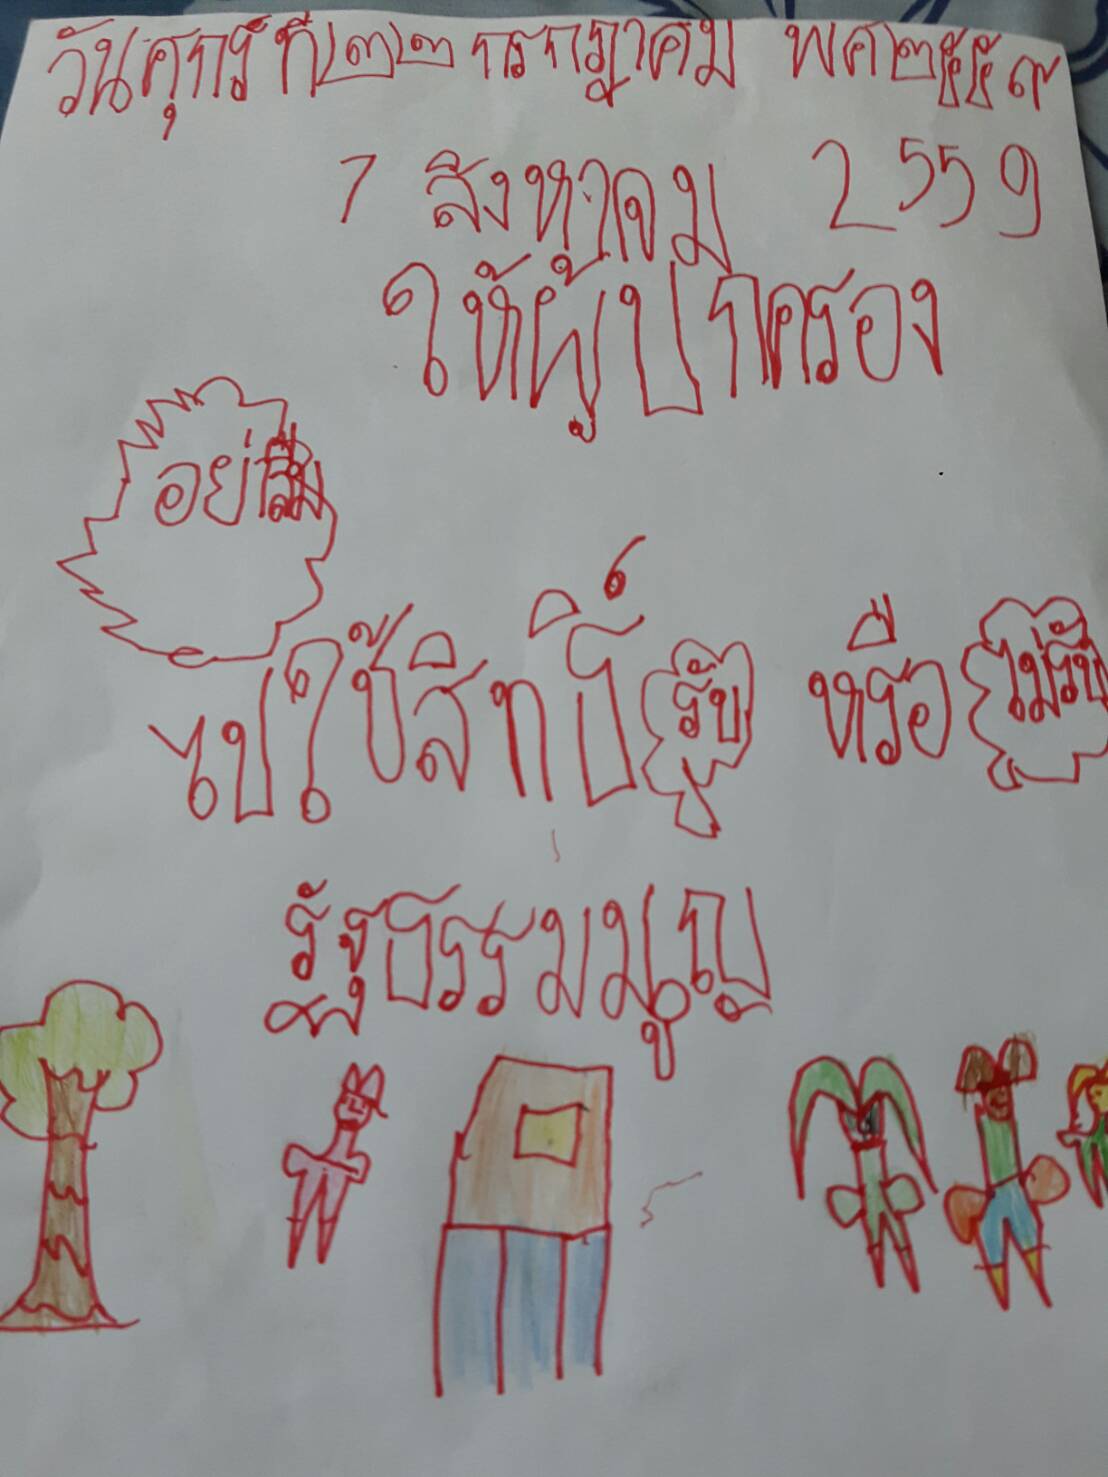 วันศุกร์ ที่ ๒๒ กรกฎาคม พศ ๒๕๕๙
7 สิงหาคม 2559
ให้ผู้ปกครอง
อย่าลืม
ไปใช้สิทธิ์ รับ หรือ ไม่รับ
รัฐธรรมนูญ